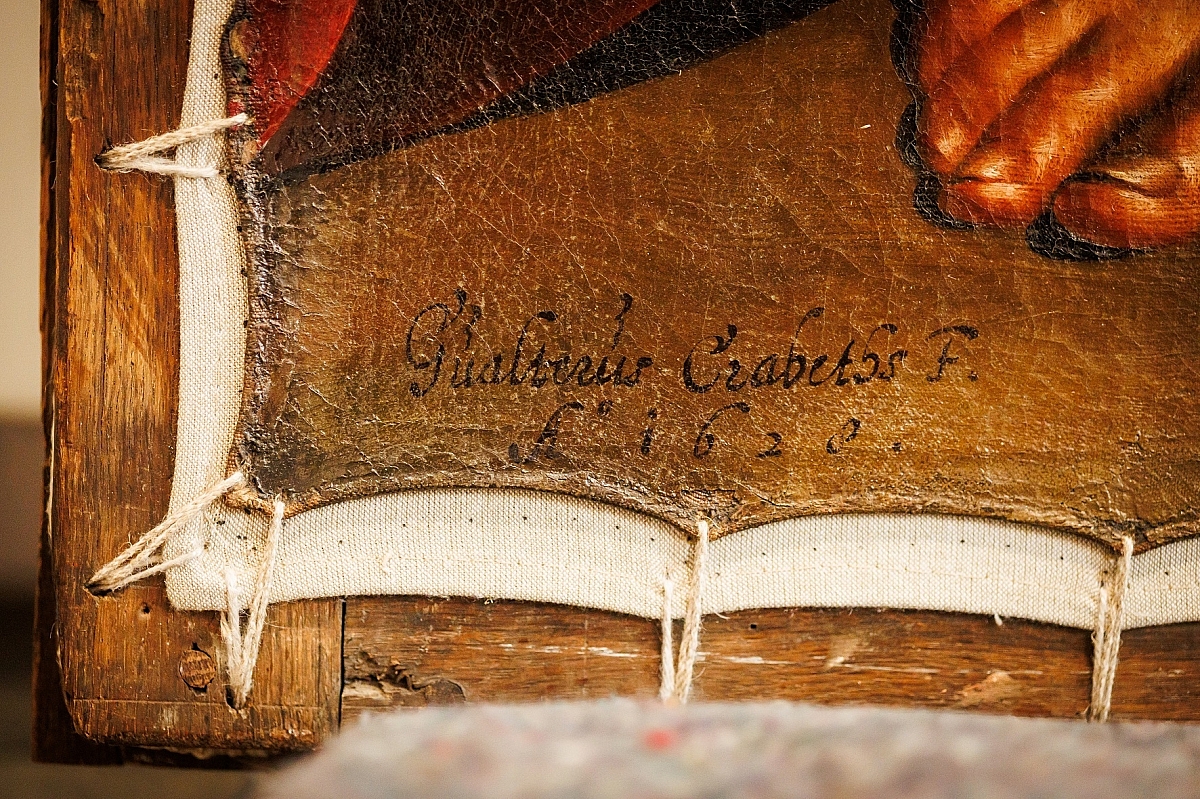 Gualterus Crabeths F.
A° 1628.